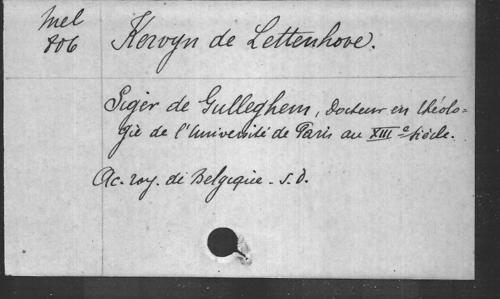 Mel
806
Kervyn de Lettenhove.
Siger de Gulleghem, Docteur en théolo-
gie de l'Université de Paris au XIII e siècle.
Ac. roy. de Belgique - S.D.